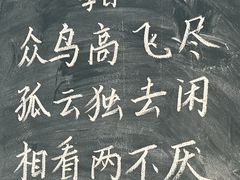 众鸟高飞尽
孤云独去闲
相看两不厌